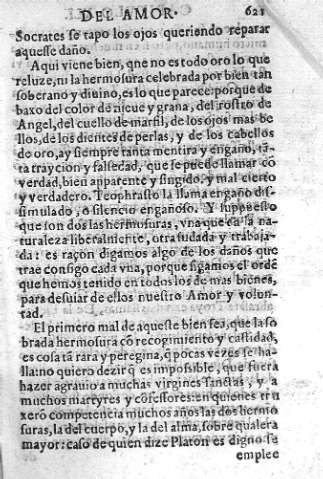 DEL AMOR. 621
Socrates se tapo los ojos queriendo reparar
aquesse daño.
Aqui viene bien, que no es todo oro lo que
reluze, ni la hermosura celebrada por bien tan
soberano y diuino, es lo que parece: porque de
baxo del color de nieue y grana, del rostro de
Angel, del cuello de marfil, de los ojos mas be
llos, de los dientes de perlas, y de los cabellos
de oro, ay siempre tanta mentira y engaño, tã-
ta trayciõ y falsedad, que se puede llamar cõ
verdad, bien apparente y fingido, y mal cierto
y verdadero. Teophrasto la llama engaño dis-
simulado, o silencio engañoso. Y supuesto
que son dos las hermosuras, vna que da la na-
turaleza liberalmente, otra sudada y trabaja-
da: es raçon digamos algo de los daños que
trae consigo cada vna, porque sigamos el ordẽ
que hemos tenido en todos los de mas bienes,
para desuiar de ellos nuestro Amor y volon-
tad.
El primero mal de aquesse bien sea, que la so
brada hermosura cõ recogimiento y castidad,
es cosa tã rara y peregina, q̃ pocas vezes se ha-
lla: no quiero dezir q̃ es impossible, que fuera
hazer agrauio a muchas virgines sanctas, y a
muchos martyres y cõfessores: en quienes tru
xerõ competencia muchos años las dos hermo
suras, la del cuerpo, y la del alma, sobre qual era
mayor: caso de quien dize Platon es digno se
emplee